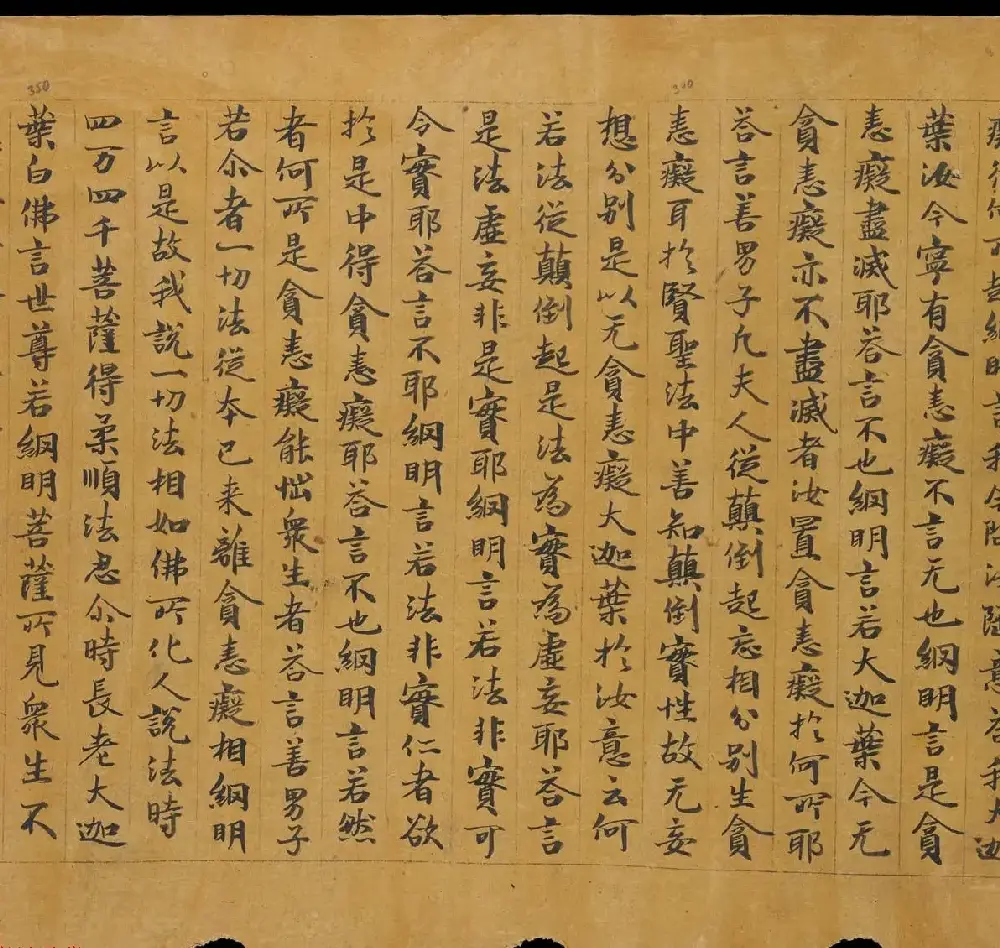 言我今問汝隨意荅我大迦
葉汝今寧有貪恚癡不言无也網明言是貪
恚癡盡滅耶荅言不也網明言若大迦葉今无
貪恚癡亦不盡滅者汝置貪恚癡於何所耶
荅言善男子凡夫人從顛倒起忘相分別生貪
恚癡耳於賢聖法中善知顛倒實性故无妄
想分別是以无貪恚癡大迦葉於汝意云何
若法從顛倒起是法為實為虛妄耶荅言
是法虛妄非是實耶網明言若法非實可
令實耶荅言不耶網明言若法非實仁者欲
於是中得貪恚癡耶荅言不也網明言若然
者何所是貪恚癡能惱衆生者荅言善男子
若尒者一切法從本已来離貪恚癡相網明
言以是故我說一切法相如佛所化人說法時
四万四千菩薩得柔順法忍尒時長老大迦
350
葉白佛言世尊若網明菩薩所見衆生不